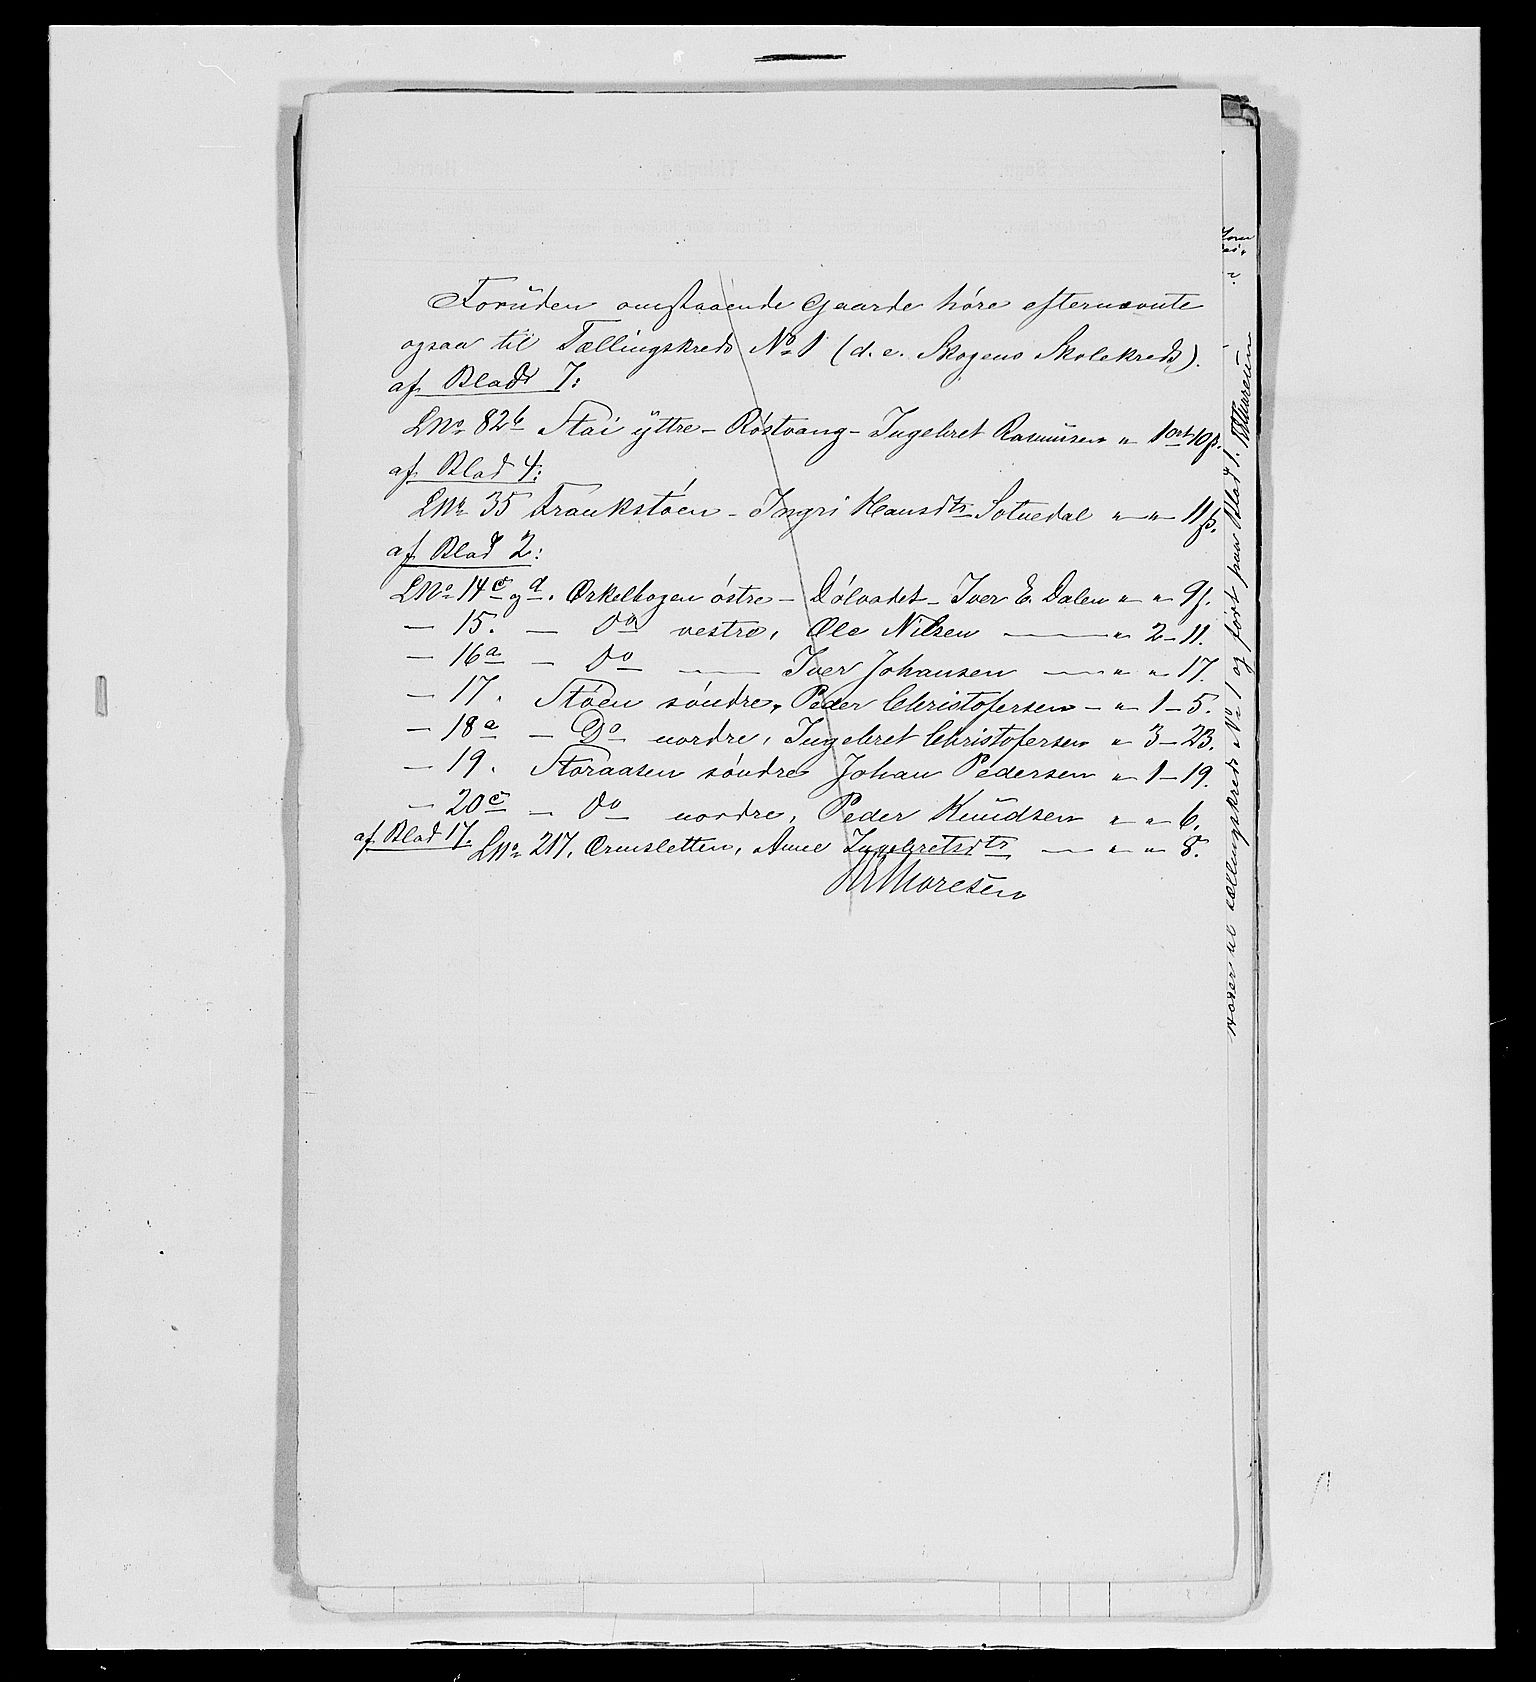 Foruden omstaaende Gaarde höre efternævnte
ogsaa til Tællingskreds No 1 (d. e. Skogens Skolekreds).
af Blad 7:
LNo 82b Stai yttre - Röstvang - Ingebret Rasmusen " 1 ort 10 ß.
af Blad 4:
LNo 35 Trankstöen - Ingri Hansdtr Sotuedal " " 11 ß.
af Blad 2:
LNo 14c og d. Ørkelbogen östre - Dölvadet - Iver E. Dalen " " 9 ß.
— 15. — Do vestre, Ole Nilsen — " 2 - 11.
— 16a — Do — Iver Johansen — " " 17.
— 17. Stöen söndre, Peder Christofersen - " 1 - 5.
— 18a — Do nordre, Ingebret Christofersen " 3 - 23.
— 19. Storaasen söndre Johan Pedersen " 1 - 19.
— 20c — Do nordre, Peder Knudsen " " 6.
af Blad 17. LNo 217. Ormsletten, Anne Ingebretsdtr — " " 8.
Thoresen
hører til Tællingskreds No 1 og fört paa Blad 1. Thoresen